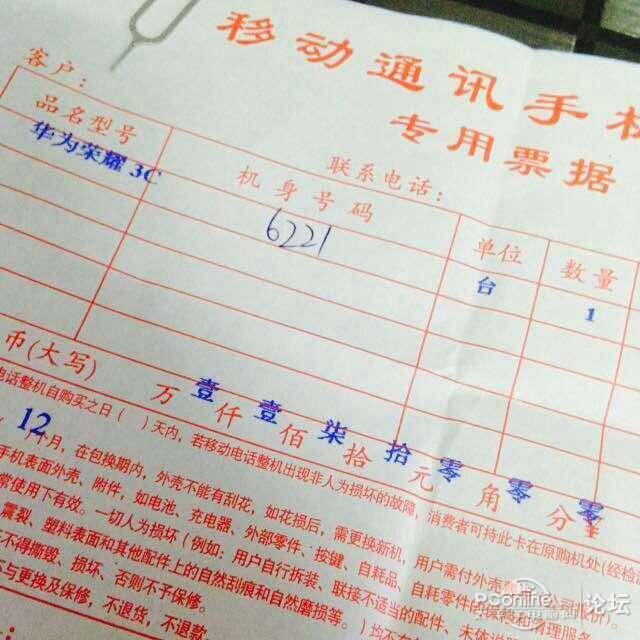 移动通讯手
专用票据
客户：
联系电话：
品名型号 机身号码 单位 数量
华为荣耀 3C 6221 台 1
币(大写) 万 壹 仟 壹 佰 柒 拾 拾 元 零 角 零 分 零
电话整机自购买之日( )天内，若移动电话整机出现非人为损坏的故障，消费者可持此卡在原购机处(经检
12 个月，在包换期内，外壳不能有刮花，如花损后，需更换新机，用户需付外壳
手机表面外壳、附件，如电池、充电器、外部零件、按键、自耗品、自耗零件
常使用下有效。一切人为损坏(例如：用户自行拆装、联接不适当的配件、未
震裂、塑料表面和其他配件上的自然刮痕和自然磨损等。)均不
不得撕毁、损坏、否则不予保修。
不与更换及保修，不退货，不退款
PConline 论坛
太平洋电脑网